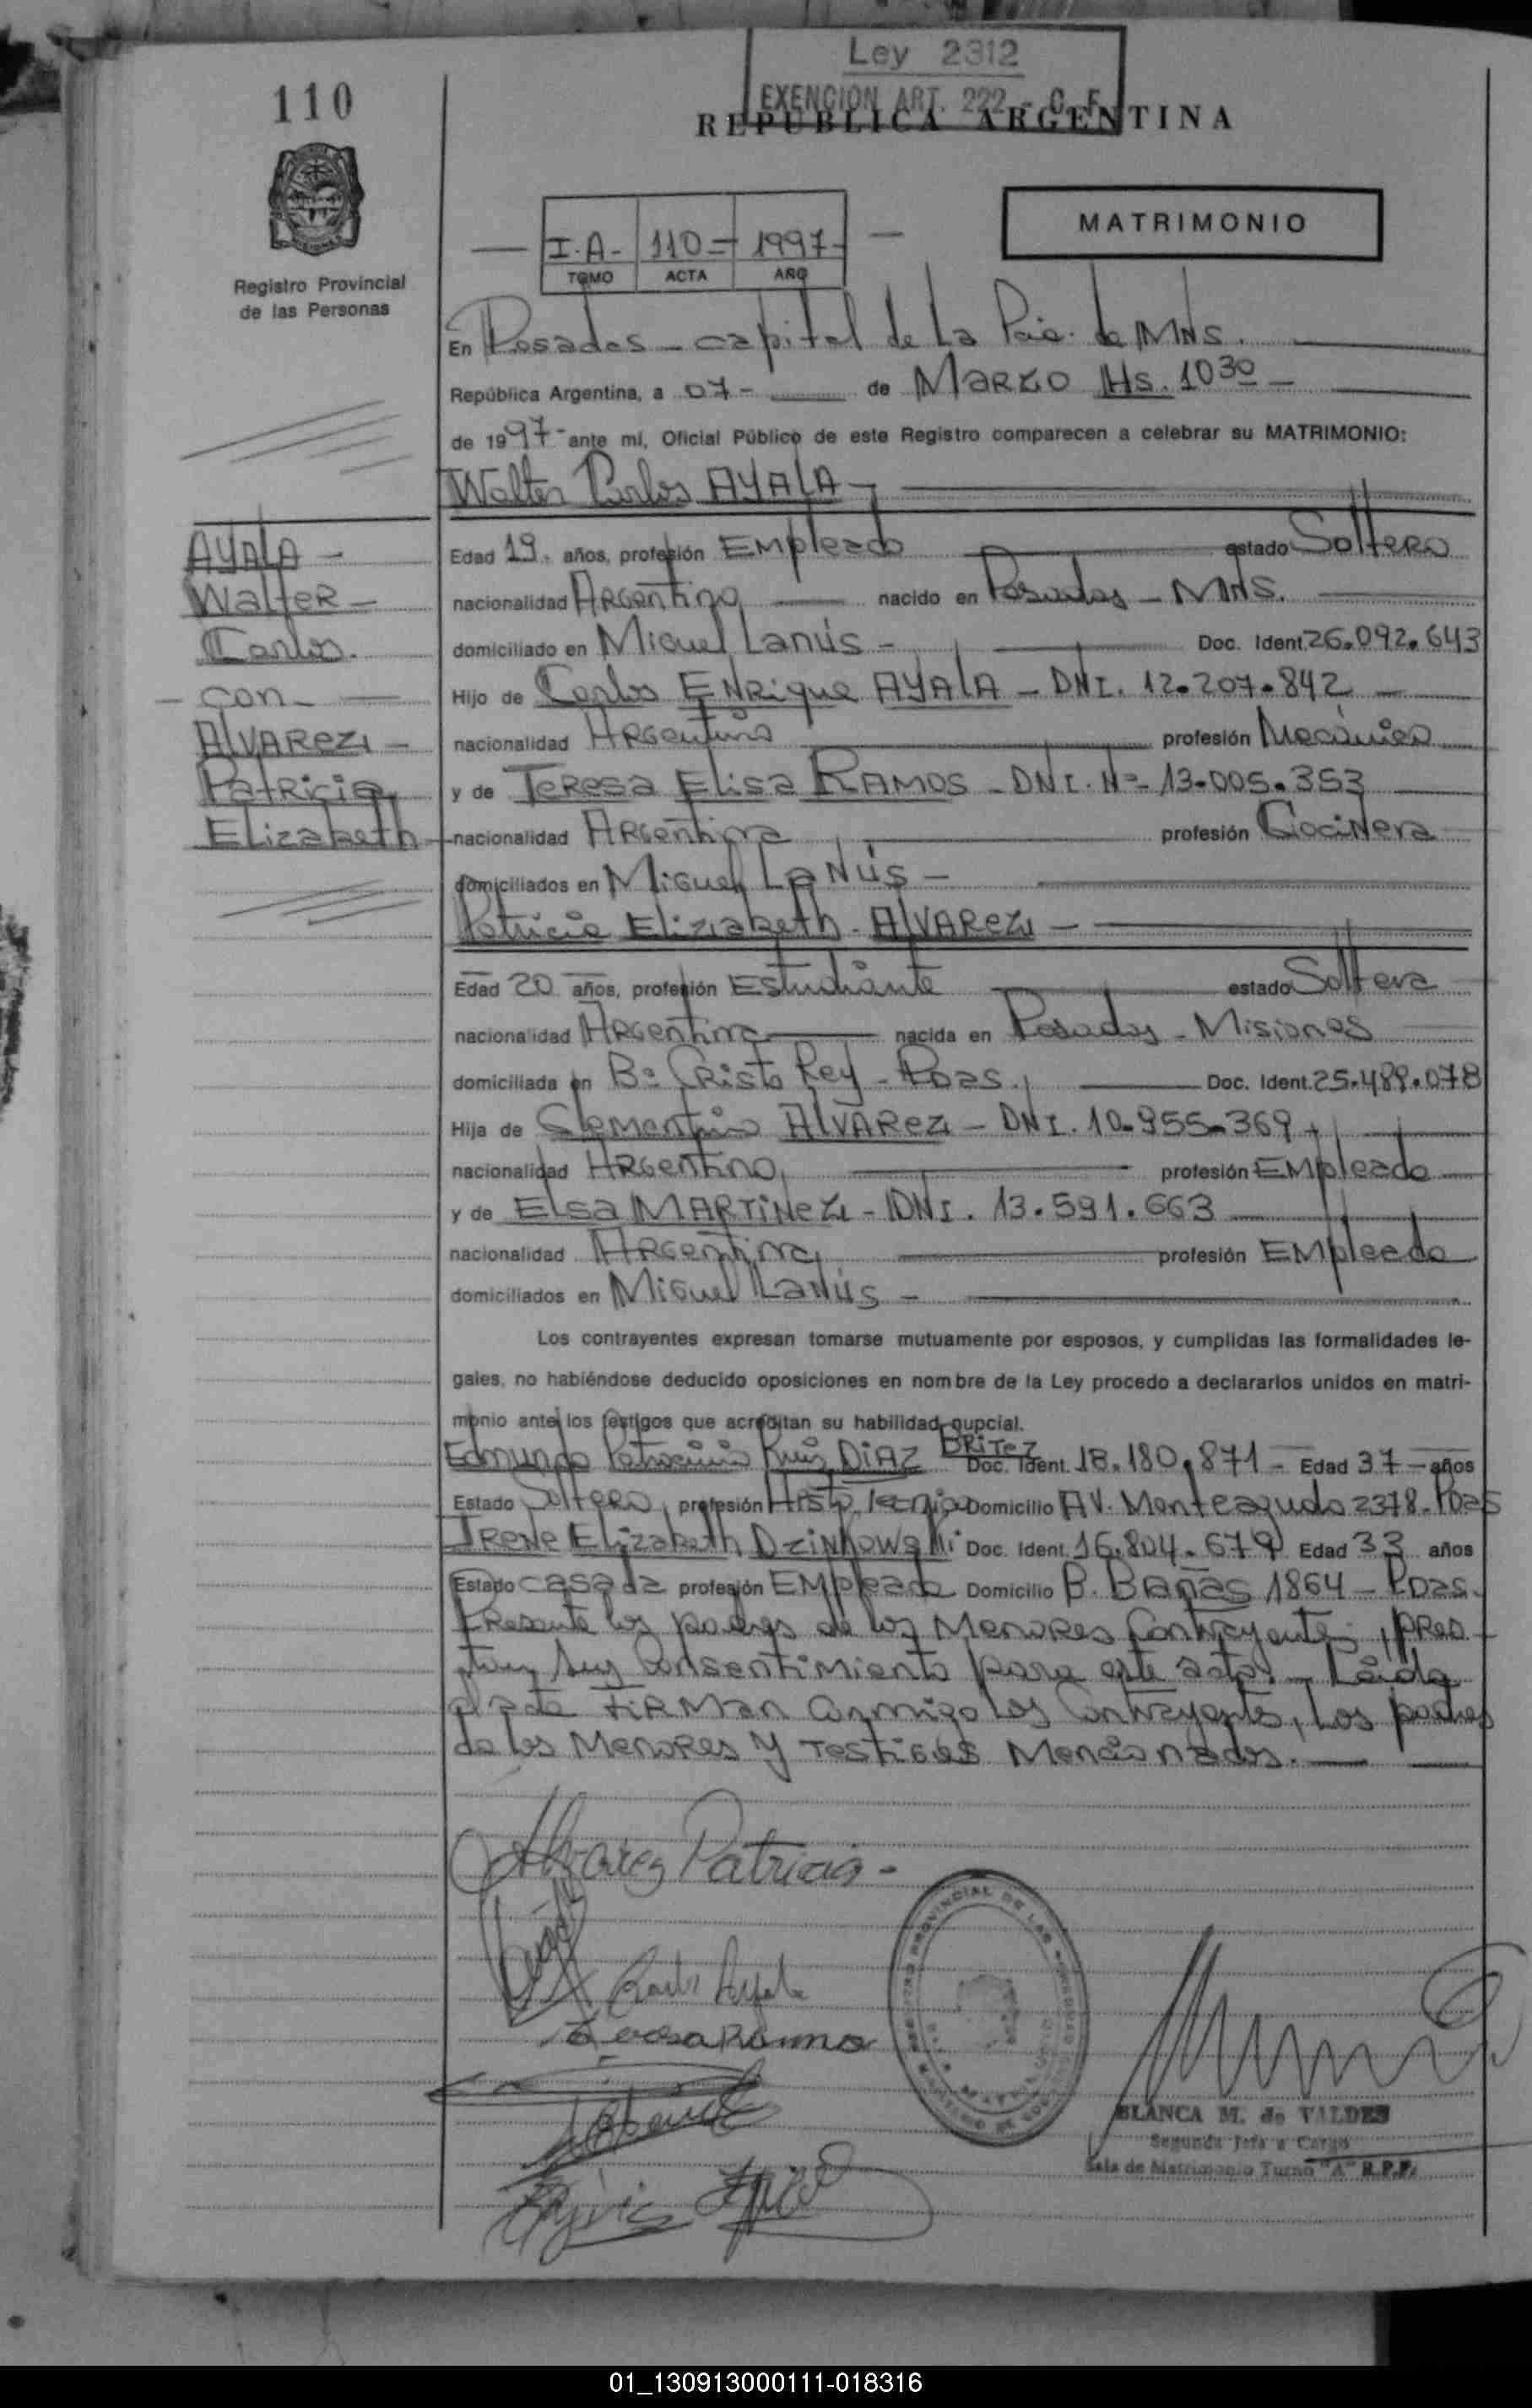 Ley 2312
EXENCION ART. 222 - C. F.
110
REPUBLICA ARGENTINA
I.A- 110= 1997-
TOMO ACTA AÑO
MATRIMONIO
Registro Provincial
de las Personas
En Posadas - capital de La Pcia. de MNS.
República Argentina, a 07- de MARZO Hs. 10 30 -
de 1997- ante mí, Oficial Público de este Registro comparecen a celebrar su MATRIMONIO:
Walter Carlos AYALA -
AYALA -
Walter -
Carlos.
- con -
ALVAREZ -
Patricia
Elizabeth
Edad 19. años, profesión Empleado estado Soltero
nacionalidad Argentina nacido en Posadas - MNS.
domiciliado en Miguel Lanús - Doc. Ident. 26.092.643
Hijo de Carlos ENRique AYALA - DNI. 12.207.842 -
nacionalidad Argentino profesión Mecánico
y de Teresa Elisa RAMOS - DNI. Nº- 13.005.353
nacionalidad Argentina profesión Cocinera
domiciliados en Miguel Lanús -
Patricia Elizabeth - ALVAREZ -
Edad 20 años, profesión Estudiante estado Soltera
nacionalidad Argentina nacida en Posadas - Misiones
domiciliada en Bº Cristo Rey - Pdas. Doc. Ident. 25.489.078
Hija de Clementino ALVAREZ - DNI. 10.955.369
nacionalidad Argentino profesión Empleado
y de Elsa MARTINEZ - DNI. 13.591.663
nacionalidad Argentina profesión Empleada
domiciliados en Miguel Lanús -
Los contrayentes expresan tomarse mutuamente por esposos, y cumplidas las formalidades le-
gales, no habiéndose deducido oposiciones en nombre de la Ley procedo a declararlos unidos en matri-
monio ante los testigos que acreditan su habilidad nupcial.
Edmundo Patrocinio Ruiz DIAZ BRITEZ Doc. Ident. 18.180.871 - Edad 37 - años
Estado Soltero, profesión Domicilio AV. Monteagudo 2378 - Pdas
IRENE Elizabeth Doc. Ident. 16.804.679 Edad 33 años
Estado casada profesión Empleada Domicilio B. Bañas 1864 - Pdas.
Presente los padres de los Menores Contrayentes, pres-
tan su consentimiento para este acto. - Leída
el acta firman conmigo los Contrayentes, Los padres
de los Menores y Testigos Mencionados. -
Alvarez Patricia -
Carlos Ayala
Teresa Ramos
REGISTRO PROVINCIAL DE LAS PERSONAS
BLANCA M. de VALDES
Segunda Jefa a Cargo
Sala de Matrimonio Turno "A" R.P.P.
01_130913000111-018316